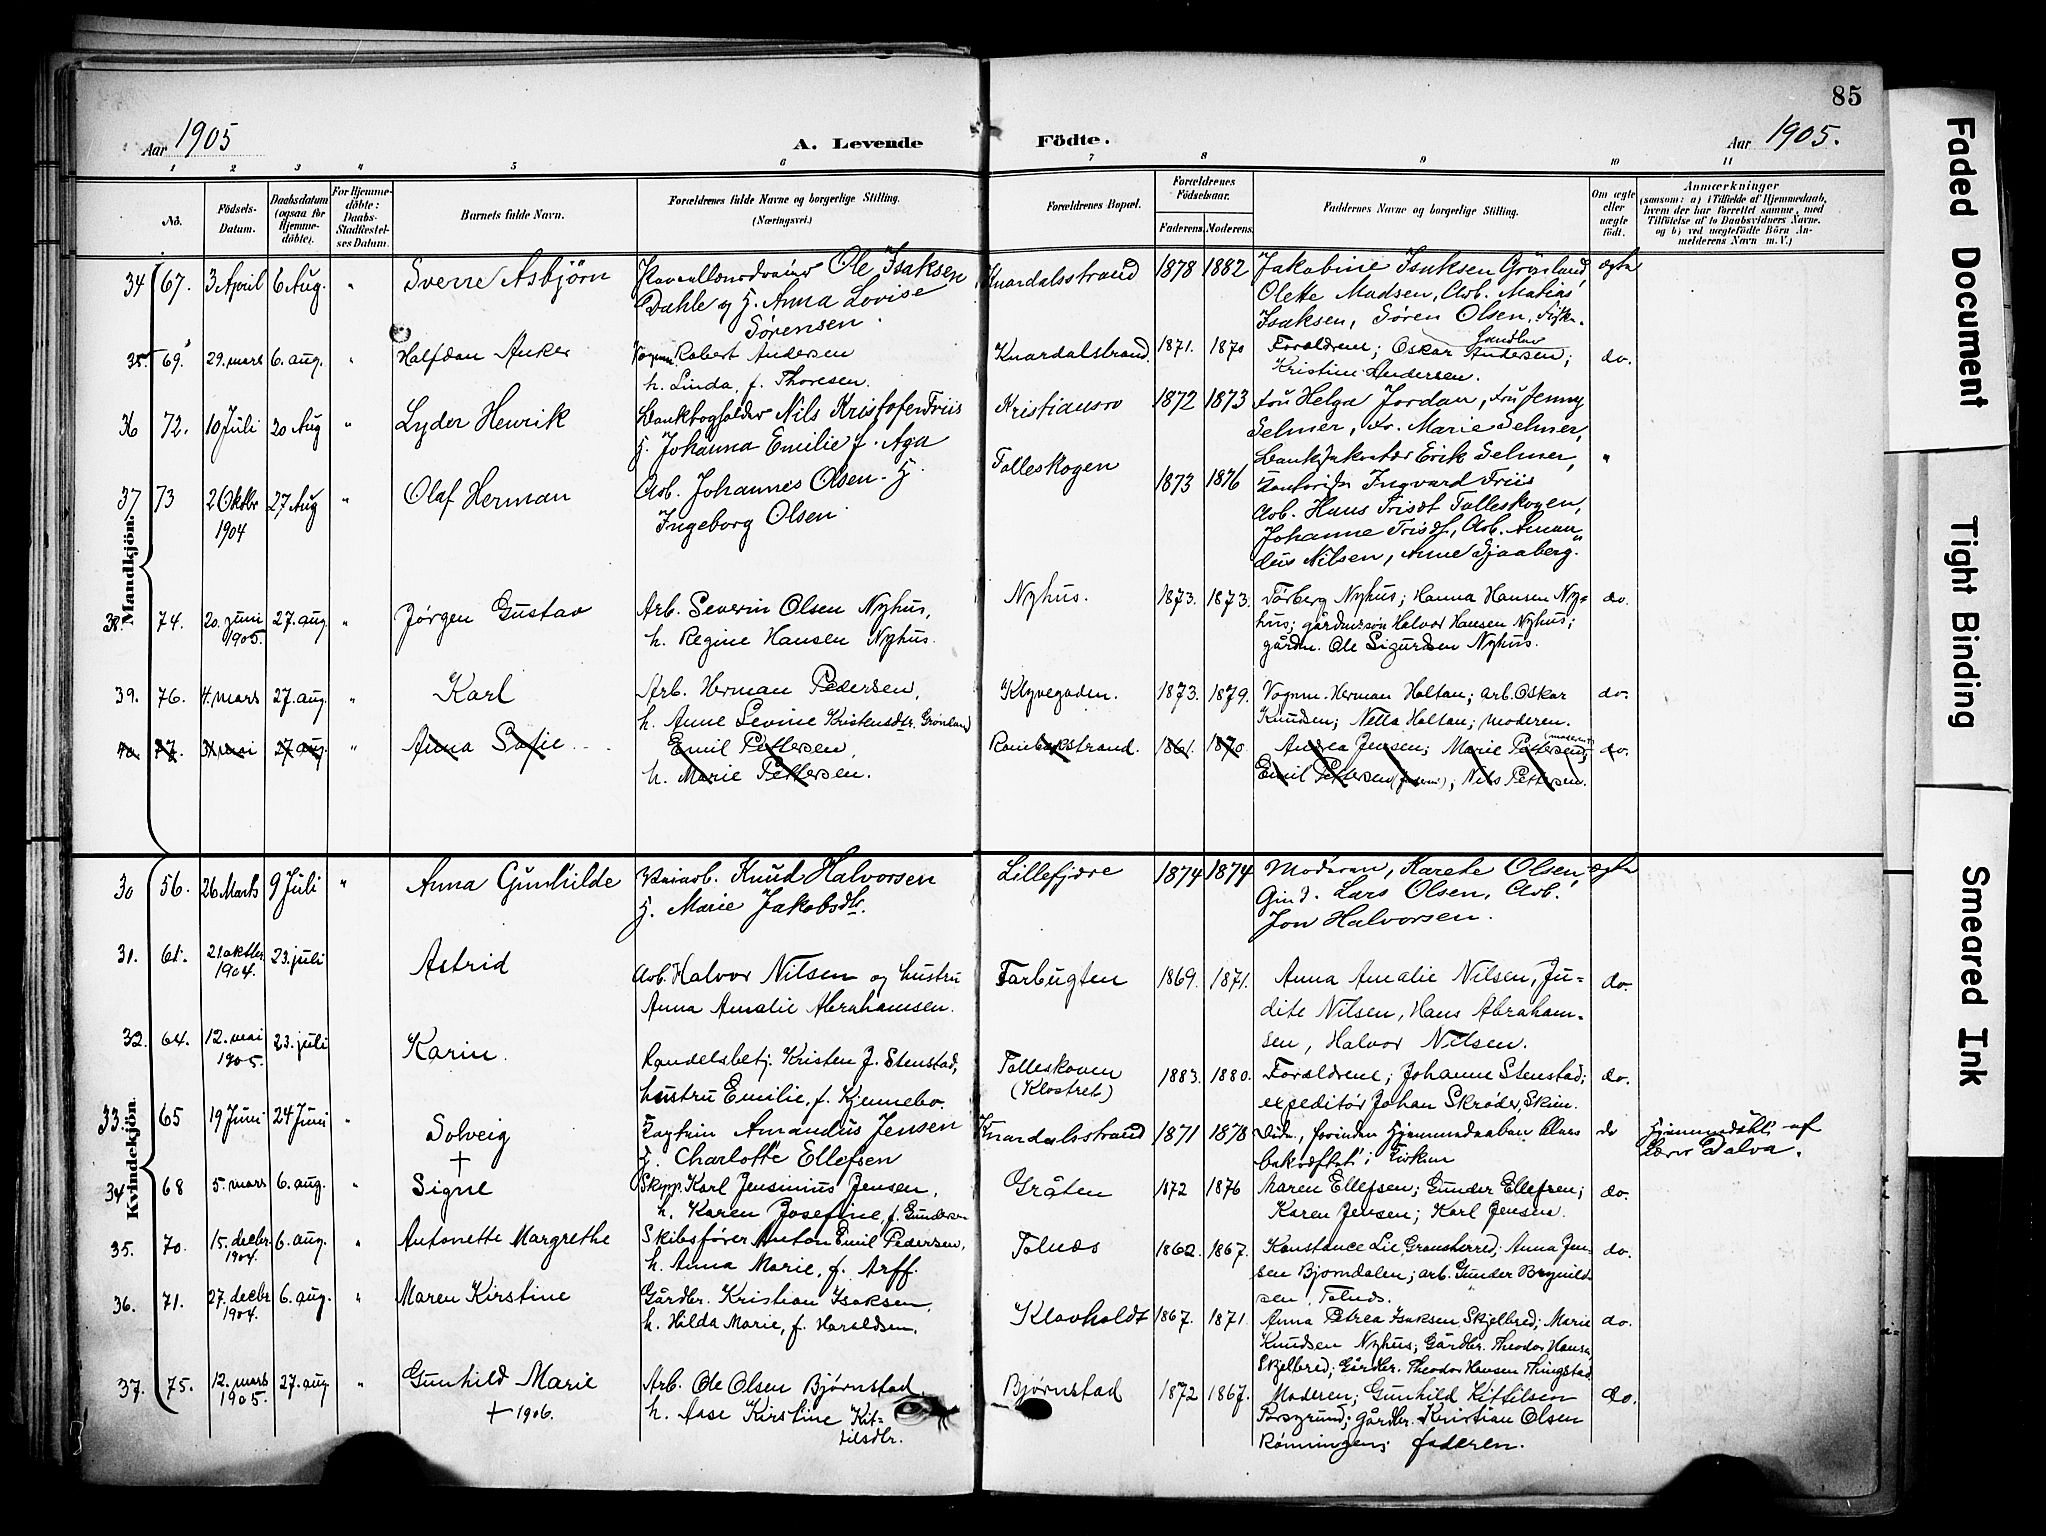 85
Aar 1905
A. Levende Födte.
Aar 1905.
1 2 3 4 5 6 7 8 9 10 11
No.
Födsels-
Datum.
Daabsdatum
(ogsaa for
Hjemme-
döbte).
For Hjemme-
döbte:
Daabs-
Stadfæstel-
ses Datum.
Barnets fulde Navn.
Forældrenes fulde Navne og borgerlige Stilling.
(Næringsvei.)
Forældrenes Bopæl.
Forældrenes
Födselsaar.
Faderens. Moderens.
Faddernes Navne og borgerlige Stilling.
Om ægte
eller
uægte
födt.
Anmærkninger
(saasom: a) i Tilfælde af Hjemmedaab,
hvem der har forrettet samme, med
Tilföielse af to Daabsvidners Navne.
og b) ved uægtefödte Börn An-
melderens Navn m. V.)
Mandkjön.
34 67. 3 April 6 Aug. " Sverre Asbjörn
Ole Isaksen
Dahle og H. Anna Lovise
Sørensen.
Knardalsstrand 1878 1882
Jakobine Isaksen Grönland,
Olette Madsen, Arb. Matias
Isaksen, Søren Olsen, Fisk.
ægte
35 69. 29. mars 6. aug. " Halfdan Anker
Vognm. Robert Andersen
h. Linda, f. Thoresen.
Knardalstrand 1871. 1870
Forældrene; Oskar Andersen;
Kristine Andersen.
do.
36 72. 10 Juli 20 Aug " Lyder Henrik
Bankbogholder Nils Kristofer Friis
H. Johanna Emilie f. Aga
Kristiansro 1872 1873
Fru Helga Jordan, Fru Jenny
Selmer, Fr. Marie Selmer,
Erik Selmer,
Ingvard Friis
"
37 73 2 Oktbr 27 Aug " Olaf Herman
1904
Arb. Johannes Olsen. H.
Ingeborg Olsen
Tolleskogen 1873 1876
Arb. Hans Tolleskogen,
Johanne Arb. Aman
dus Nilsen, Anne Gjaaberg.
38. 74. 20. juni 27. aug " Jørgen Gustav
1905.
Arb. Severin Olsen Nyhus,
h. Regine Hansen Nyhus.
Nyhus. 1873. 1873.
Torberg Nyhus; Hanna Hansen Ny-
hus; gårdmrsøn Halvor Hansen Nyhus;
gårdm. Ole Sigurdsen Nyhus.
do.
39. 76. 4. mars 27. aug. " Karl
Arb. Herman Pedersen,
h. Anne Levine Kristensdtr. Grönland
Klyvegaden. 1873. 1879.
Vognm. Herman Holtan; arb. Oskar
Knudsen; Netta Holtan; moderen.
do.
40 77. 31 mai 27 aug. " Anna Sofie
Emil Pettersen
h. Marie Pettersen.
Rombakstrand. 1861. 1870.
Andrea Jensen; Marie Pettersen (moderen);
Emil Pettersen (faderen); Nils Pettersen.
do.
Kvindekjön.
30 56. 26 Marts 9 Juli " Anna Gunhilde
Knud Halvorsen
H. Marie Jakobsdtr.
Lillefjære 1874 1874
Moderen, Karete Olsen,
Gmd. Lars Olsen, Arb.
Jon Halvorsen.
ægte
31. 61. 21. oktbr. 23. juli Astrid
1904.
Arb. Halvor Nilsen og hustru
Anna Amalie Abrahamsen.
Farbugten 1869. 1871.
Anna Amalie Nilsen, Ju-
dite Nilsen, Hans Abraham-
sen, Halvor Nilsen.
do.
32. 64. 12. mai 23. juli Karin.
1905.
Handelsbetj. Kristen J. Stenstad,
hustru Emilie, f. Kjennebo.
Tolleskoven
(Klostret)
1883. 1880.
Forældrene; Johanne Stenstad;
expeditør Johan Skrøder, Skien.
do.
33. 65 19 Juni 24 Juni " Solveig
+
Kaptein Amandus Jensen
H. Charlotte Ellefsen
Knardalsstrand 1871 1878
bekræftet i Kirken
do
Hjemmedöbt af
Lærer Dalva.
34 68 5. mars 6. aug. " Signe
Skipp. Karl Jensinius Jensen,
h. Karen Josefine, f. Gundersen
Gråten 1872 1876
Maren Ellefsen; Gunder Ellefsen;
Karen Jensen; Karl Jensen.
do.
35. 70. 15. decbr. 6. aug. " Antonette Margrethe
1904.
Skibsfører Anton Emil Pedersen,
h. Anna Marie, f. Arff.
Tolnæs 1862. 1867.
Konstance Lie, Gransherred; Anna Jen-
sen Bjorndalen; arb. Gunder Brynild-
sen, Tolnæs.
do.
36. 71. 27. decbr 6. aug. " Maren Kirstine
1904.
Gårdbr. Kristian Isaksen,
h. Hilda Marie, f. Haraldsen.
Klovholdt 1867. 1871.
Anna Petrea Isaksen, Skjelbred; Marie
Knudsen Nyhus; Gårdbr. Theodor Hansen
Skjelbred; Gårdbr. Theodor Hansen Thingstad
do.
37. 75. 12. mars 27. aug " Gunhild Marie
1905. + 1906.
Arb. Ole Olsen Bjørnstad,
h. Aase Kirstine Kit-
tilsdtr.
Bjørnstad 1872 1867.
Moderen; Gunhild Kittilsen
Porsgrund; gårdbr. Kristian Olsen
Rønningen; faderen.
do.
Faded Document
Tight Binding
Smeared Ink